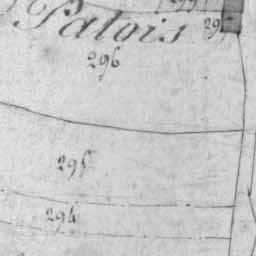 Patois
296
295
294